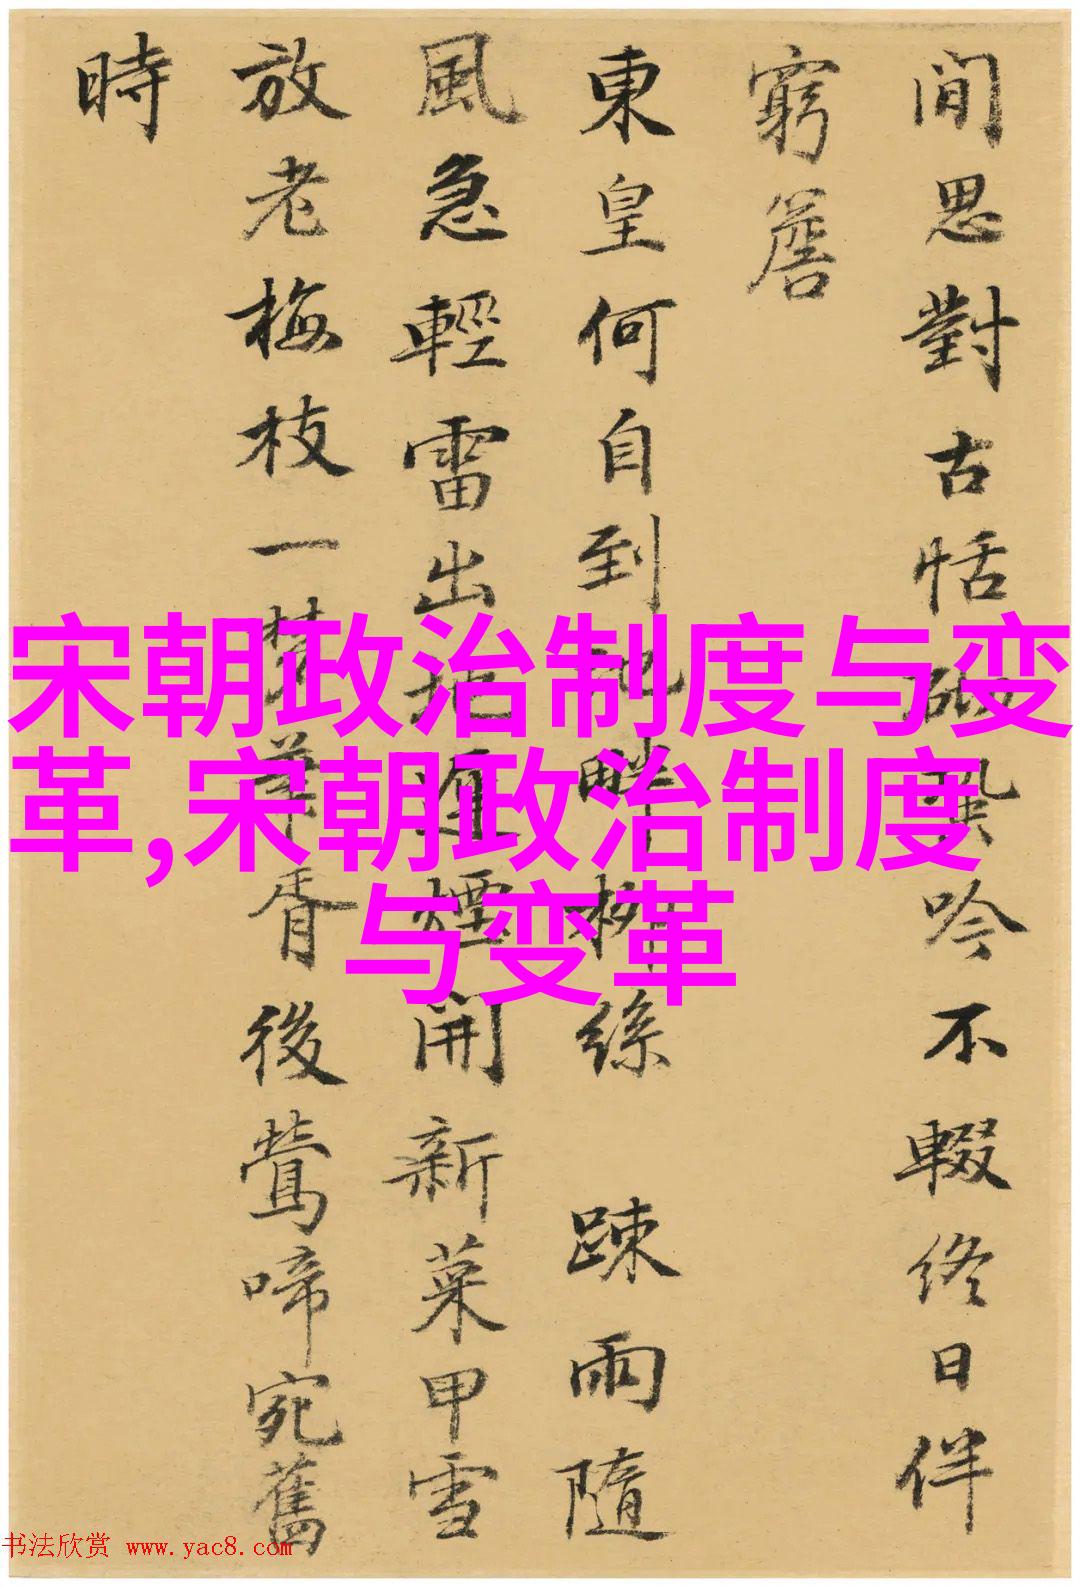 閒思對古恬 吟不輟終日伴
窮簷
東皇何自到池畔柳絲疎雨隨
風急輕雷出地 煙開新菜甲雪
放老梅枝一夢華胥後鶯啼宛舊
時
宋朝政治制度与变
革,宋朝政治制度
与变革
书法欣赏 www.yac8.com